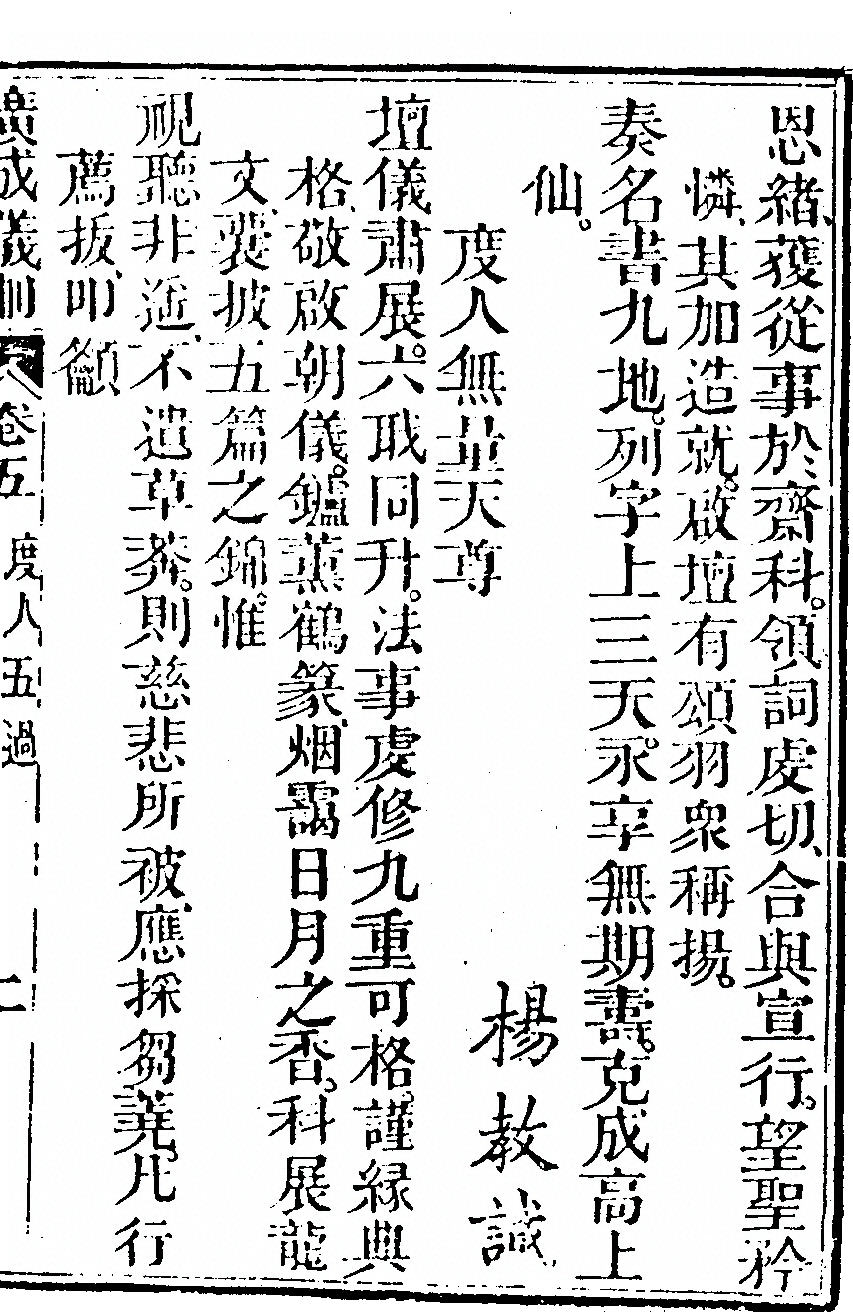 恩緒、獲從事於齋科。領詞虔切、合與宣行。望聖矜
憐、其加造就。啟壇有頌、羽衆稱揚。
奏名書九地。列字上三天。永享無期壽。克成高上
仙。
度人無量天尊
楊教誠
壇儀肅展。六戢同升。法事虔修、九重可格。謹緣典
格、敬啟朝儀。鑪薰鶴篆、烟靄日月之香。科展龍
文、裴披五篇之錦。惟
視聽非遥、不遺草莽。則慈悲所被、應採芻蕘。凡行
薦拔、叩籲
廣成儀制 卷五 度人五過 二